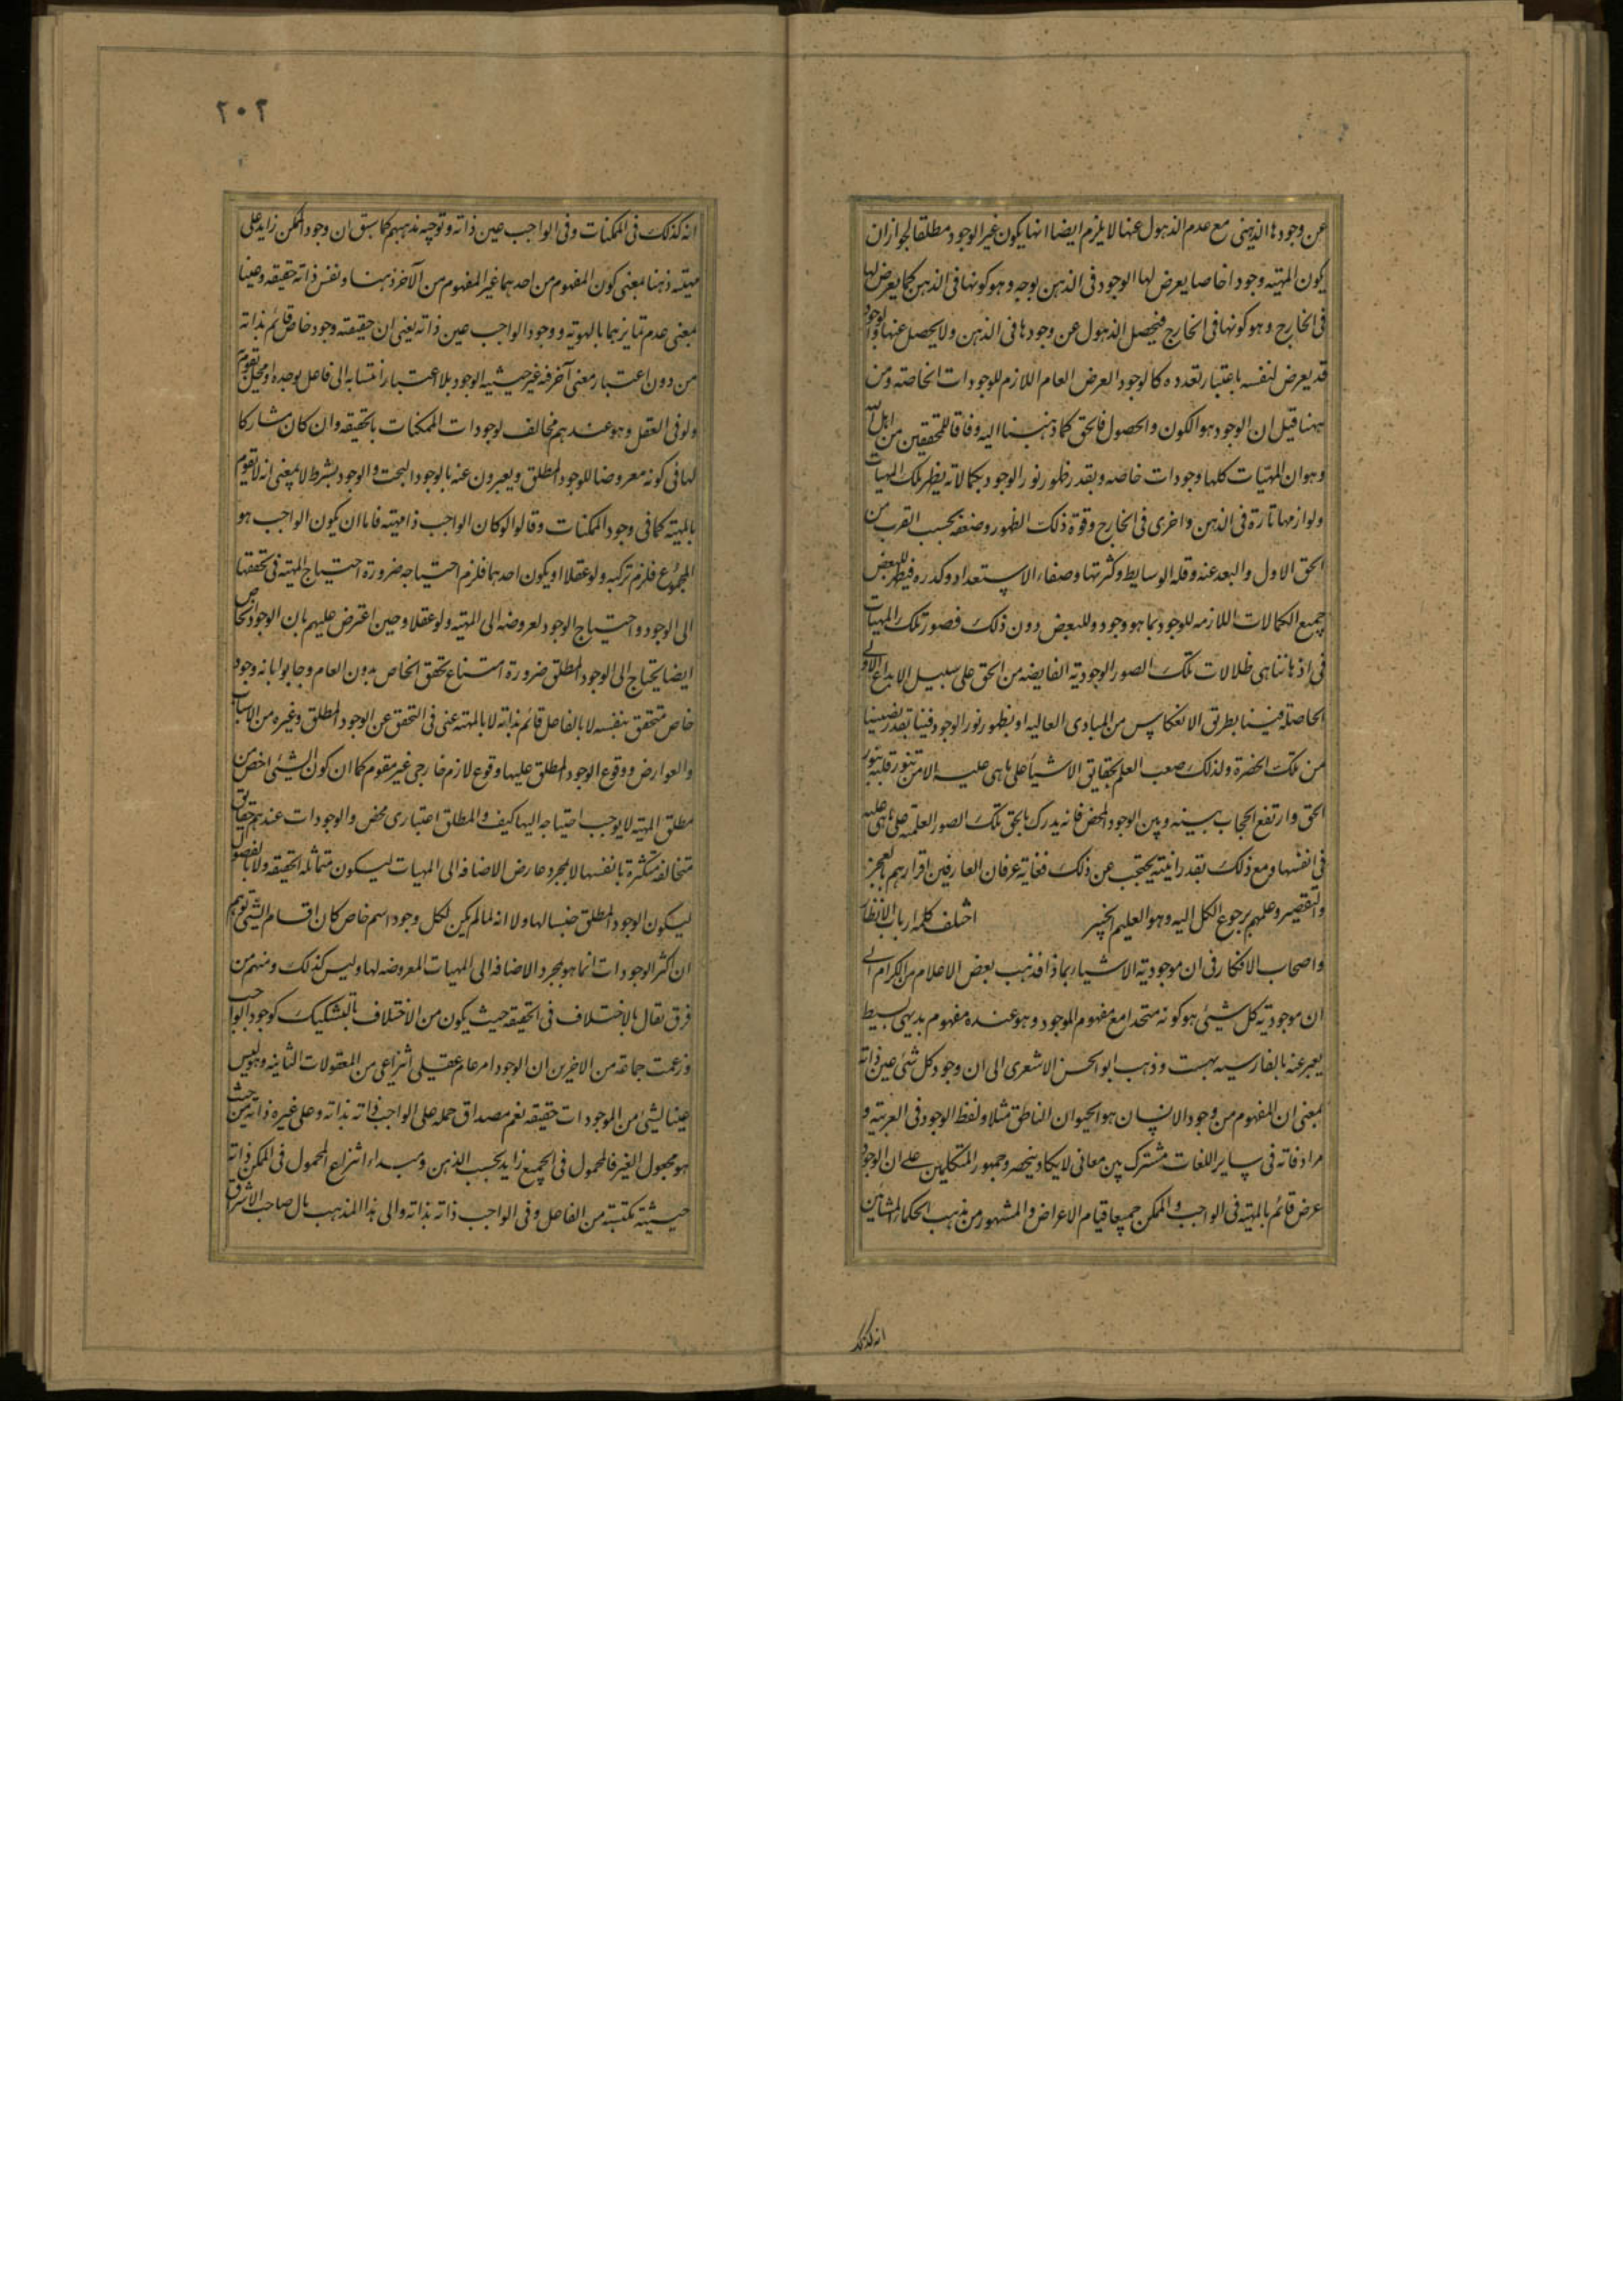 عن وجودها الذهنی مع عدم الذهول عنها لا یلزم ایضا انها یکون غیر الوجود مطلقا لجواز ان
یکون المهیته وجودا خاصا یعرض لها الوجود فی الذهن بوجه و هو کونها فی الذهن کما یعرض لها
فی الخارج و هو کونها فی الخارج فیحصل الذهول عن وجودها فی الذهن ولا یحصل عنها والوجود
قد یعرض لنفسه باعتبار تعدده کالوجود العرض العام اللازم للوجودات الخاصته ومن
ههنا قیل ان الوجود هو الکون والحصول فالحق کما ذهبنا الیه وفاقا للمحققین من اهل الله
وهو ان المهیات کلها وجودات خاصه وبقدر ظهور نور الوجود بکمالاته یظهر تلک المهیات
ولوازمها تارة فی الذهن واخری فی الخارج وقوة ذلک الظهور وضعفه بحسب القرب من
الحق الاول والبعد عنه وقلة الوسایط وکثرتها وصفاء الاستعداد وکدره فیظهر للبعض
جمیع الکمالات اللازمه للوجود بما هو وجود وللبعض دون ذلک فصور تلک المهیات
فی اذهاننا هی ظلالات تلک الصور الوجودیة الفایضه من الحق علی سبیل الابداع الاولی
الحاصلة فینا بطریق الانعکاس من المبادی العالیه او بظهور نور الوجود فینا بقدر نصیبنا
من تلک الحضرة ولذلک صعب العلم بحقایق الاشیأ علی ما هی علیه الا من تنور قلبه بنور
الحق وارتفع الحجاب بینه وبین الوجود المحض فانه یدرک بالحق تلک الصور العلمیة علی ما هی علیه
فی انفسها ومع ذلک بقدر انیته یحتجب عن ذلک فغایة عرفان العارفین اقرارهم بالعجز
والتقصیر وعلمهم برجوع الکل الیه وهو العلیم الخبیر اختلف کلمة ارباب الانظار
واصحاب الافکار فی ان موجودیة الاشیاء بماذا فذهب بعض الاعلام من الکرام الی
ان موجودیة کل شیئی هو کونه متحدا مع مفهوم الموجود وهو عنده مفهوم بدیهی بسیط
یعبر عنه بالفارسیه بهست وذهب ابو الحسن الاشعری الی ان وجود کل شئ عین ذاته
بمعنی ان المفهوم من وجود الانسان هو الحیوان الناطق مثلا ولفظ الوجود فی العربیة و
مرادفاته فی سایر اللغات مشترک بین معانی لا یکاد ینحصر وجمهور المتکلمین علی ان الوجود
عرض قائم بالمهیة فی الواجب والممکن جمیعا قیام الاعراض والمشهور من مذهب الحکماء المشائین
انه کذلک
۲۰۲
انه کذلک فی الممکنات وفی الواجب عین ذاته وتوجیه مذهبهم کما سبق ان وجود الممکن زاید علی
مهیته ذهنا بمعنی کون المفهوم من احدهما غیر المفهوم من الآخر ذهنا ونفس ذاته حقیقه وعینا
بمعنی عدم تمایزهما بالهویه ووجود الواجب عین ذاته یعنی ان حقیقته وجود خاص قائم بذاته
من دون اعتبار معنی آخر فیه غیر حیثیه الوجود بلا اعتبار انتسابه الی فاعل یوجده او محل یقوم
ولو فی العقل وهو عندهم مخالف لوجودات الممکنات بالحقیقه وان کان مشارکا
لها فی کونه معروضا للوجود المطلق ویعبرون عنه بالوجود البحت والوجود بشرط لا بمعنی انه لا تقوم
بالمهیته کما فی وجود الممکنات وقالوا لو کان الواجب ذا مهیته فاما ان یکون الواجب هو
المجموع فلزم ترکبه ولو عقلا او یکون احدهما فلزم احتیاجه ضرورة احتیاج المهیته فی تحققها
الی الوجود واحتیاج الوجود لعروضه الی المهیته ولو عقلا وحین اعترض علیهم بان الوجود الخاص
ایضا یحتاج الی الوجود المطلق ضرورة امتناع تحقق الخاص بدون العام وجابوا بانه وجود
خاص متحقق بنفسه لا بالفاعل قائم بذاته لا بالمهیته غنی فی التحقق عن الوجود المطلق وغیره من الاسباب
والعوارض ووقوع الوجود المطلق علیها وقوع لازم خارجی غیر مقوم کما ان کون الشیئ اخص من
مطلق المهیته لا یوجب احتیاجه الیها کیف والمطلق اعتباری محض والوجودات عندهم حقایق
متخالفه متکثرة بانفسها لا بمجرد عارض الاضافه الی المهیات لیکون متماثله الحقیقه ولا بالفصول
لیکون الوجود المطلق جنسا لها ولا انه لما لم یکن لکل وجود اسم خاص کان اقسام الشیئ توهم
ان اکثر الوجودات انما هو بمجرد الاضافه الی المهیات المعروضه لها ولیس کذلک ومنهم من
فرق تقال بالاختلاف فی الحقیقه حیث یکون من الاختلاف بالتشکیک کوجود الواجب
وزعمت جماعة من الاخرین ان الوجود امر عام عقیلی انتزاعی من المعقولات الثانیه وهو لیس
عینا لشیئ من الموجودات حقیقه نعم مصداق حمله علی الواجب ذاته بذاته وعلی غیره ذاته من حیث
هو مجعول الغیر فالمحمول فی الجمیع زاید بحسب الذهن ومبداء انتزاع المحمول فی الممکن ذاته
حیثیته مکتسبة من الفاعل وفی الواجب ذاته بذاته والی هذا المذهب مال صاحب الاشراق